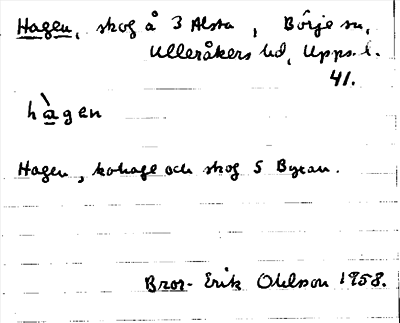 Hagen, skog å 3 Alsta, Börje sn,
Ulleråkers hd, Upps. l.
41.
hàgen
Hagen, kohage och skog S Byran.
Bror-Erik Ohlson 1958.